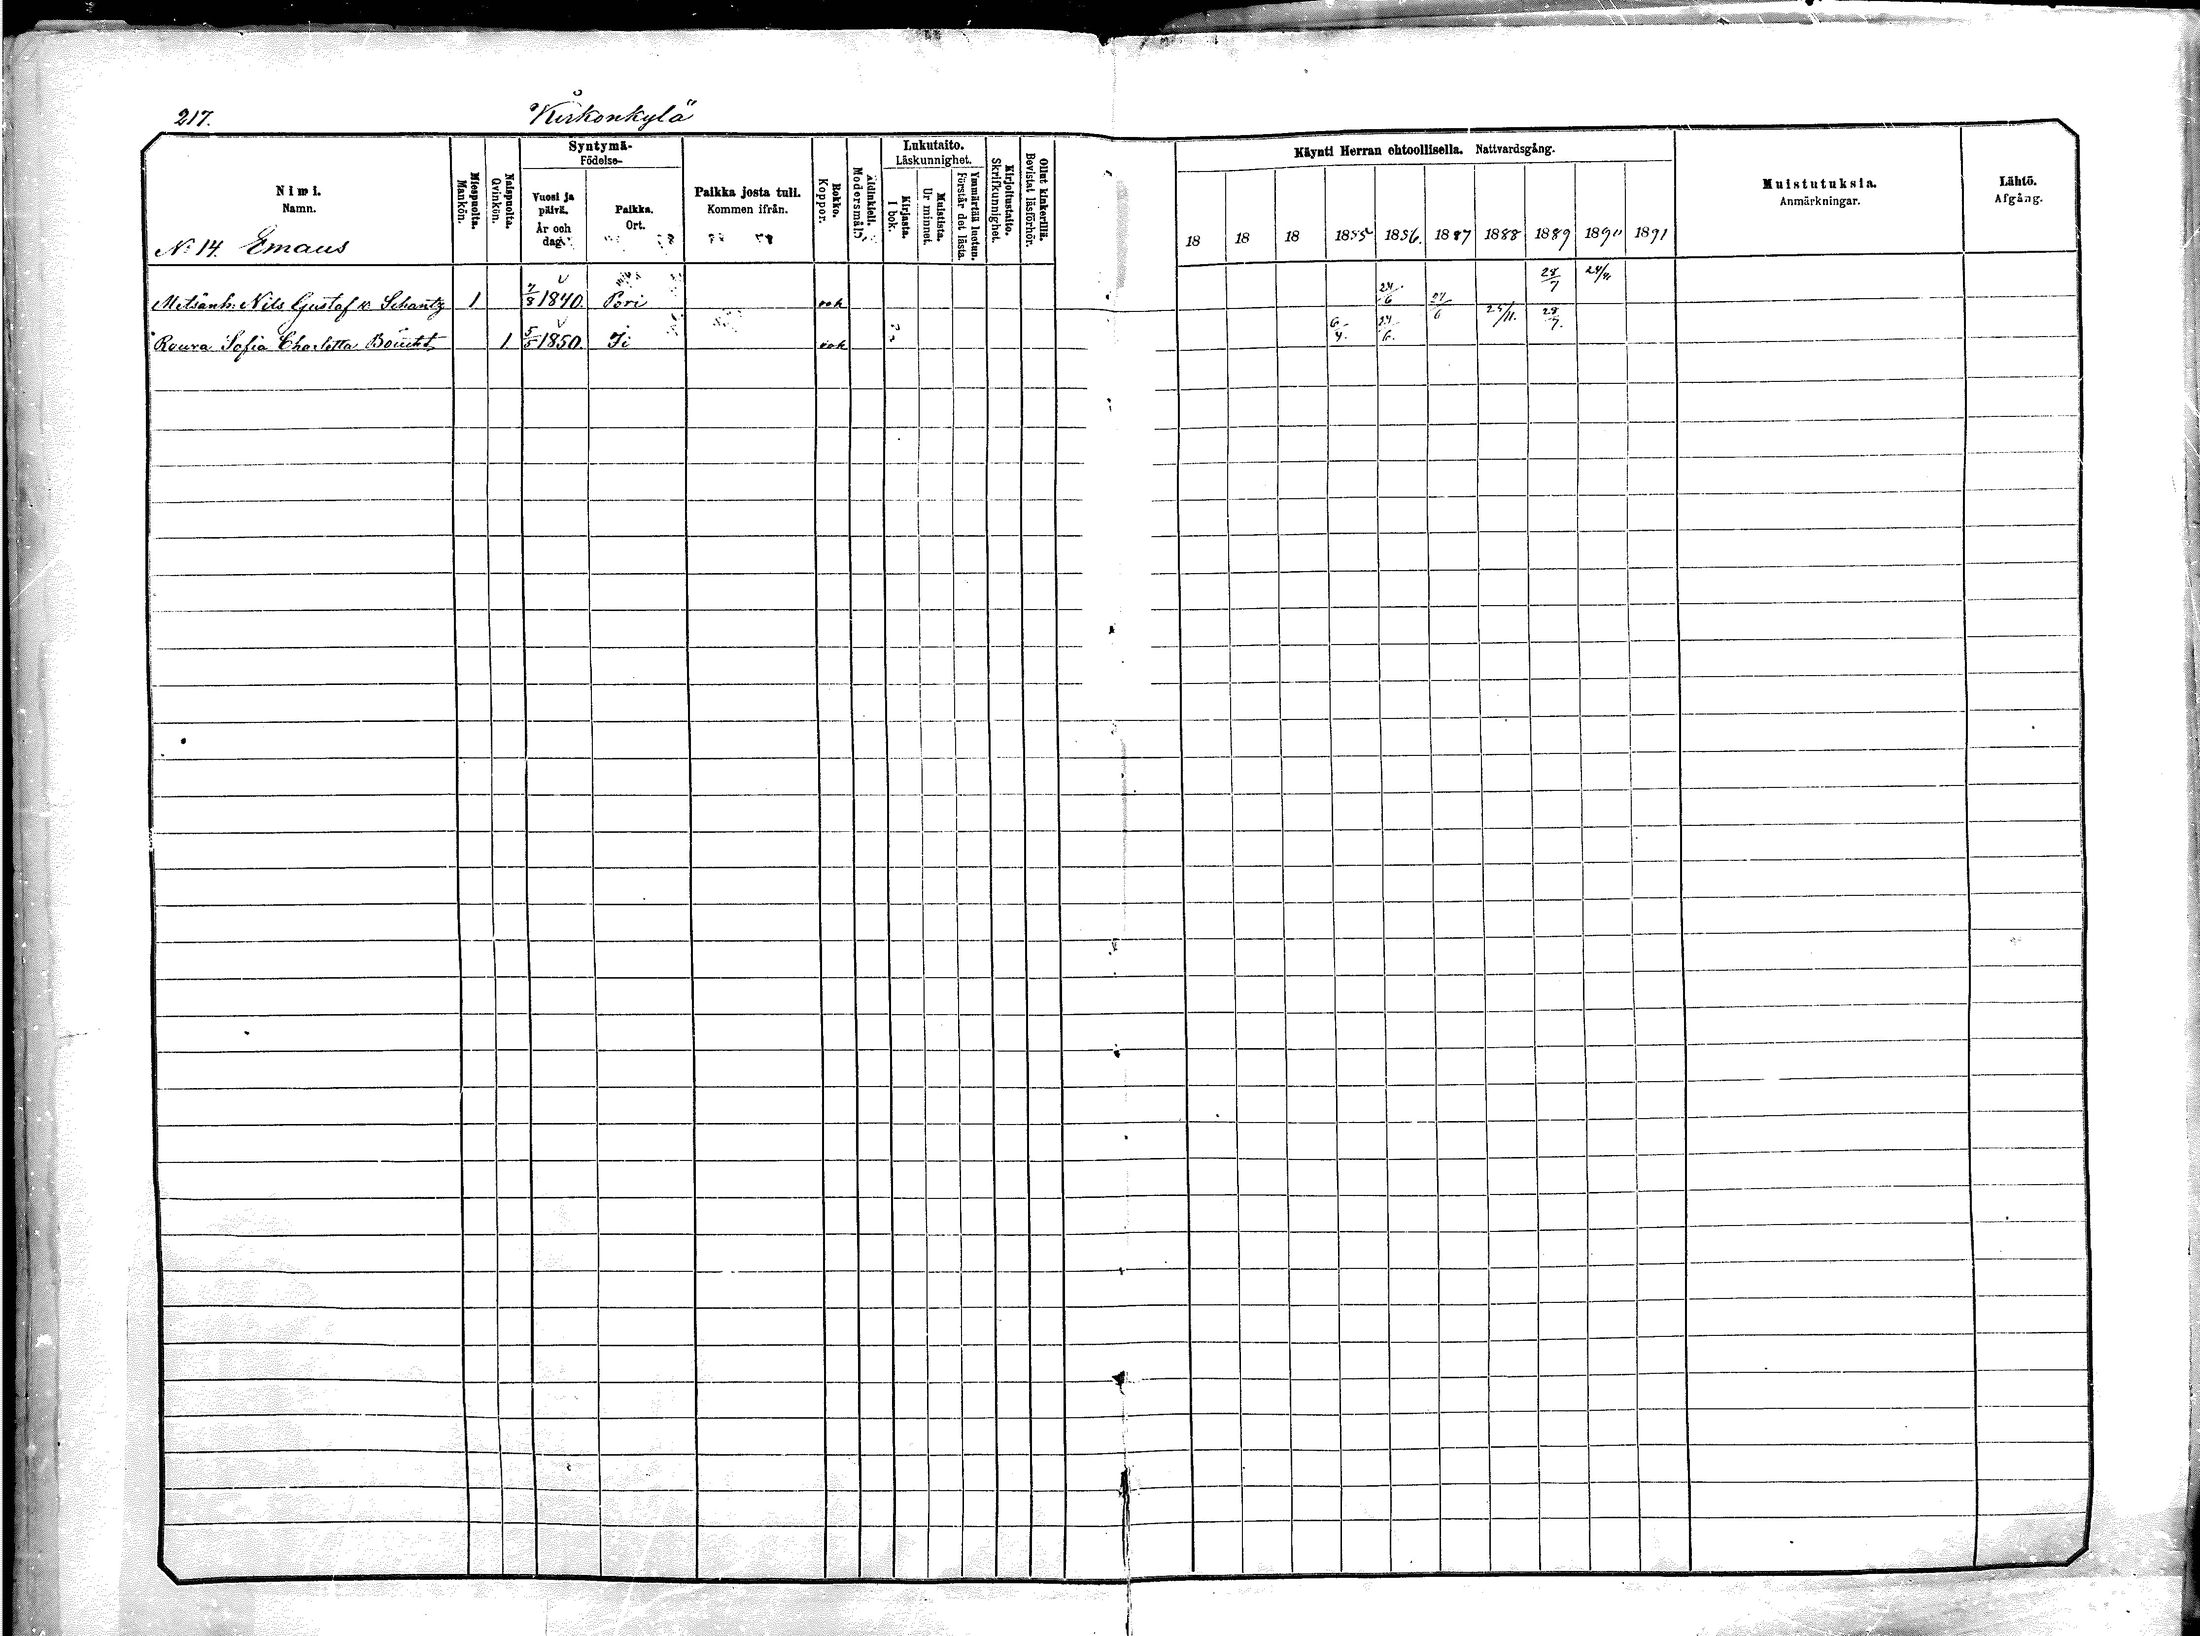 217.
Kirkonkylä
Nimi.
Namn.
No 14. Emaus
Miespuolta.
Mankön.
Naispuolta.
Qvinkön.
Syntymä-
Födelse-
Vuosi ja
päivä.
År och
dag.
Paikka.
Ort.
Paikka josta tuli.
Kommen ifrån.
Rokko.
Koppor.
Äidinkieli.
Modersmål.
Lukutaito.
Läskunnighet.
Kirjasta.
I bok.
Muistista.
Ur minnet.
Ymmärtää luetun.
Förstår det lästa.
Kirjoitustaito.
Skrifkunnighet.
Ollut kinkerillä.
Bevistat läsförhör.
Käynti Herran ehtoollisella. Nattvardsgång.
18 18 18 1885 1886. 1887 1888 1889 1890 1891
Muistutuksia.
Anmärkningar.
Lähtö.
Afgång.
Metsänh: Nils Gustaf v. Schantz 1. 7/8 1840. Pori rok 24/6 24/6 28/7
Rouva Sofia Charlotta 1. 5/5 1850. Ii rok 6/4. 24/6. 28/7.